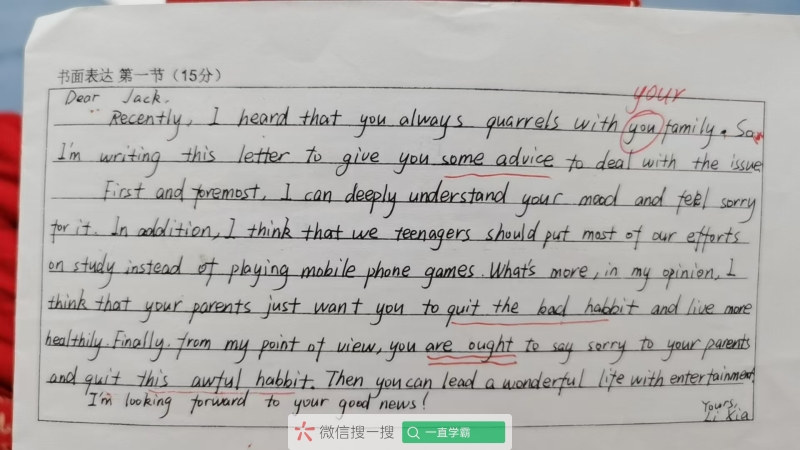 书面表达 第一节（15分）
Dear Jack,
your
Recently, I heard that you always quarrels with you family. So
I'm writing this letter to give you some advice to deal with the issue
First and foremost, I can deeply understand your mood and feel sorry
for it. In addition, I think that we teenagers should put most of our efforts
on study instead of playing mobile phone games. What's more, in my opinion, I
think that your parents just want you to quit the bad habbit and live more
healthily. Finally, from my point of view, you are ought to say sorry to your parents
and quit this awful habbit. Then you can lead a wonderful life with entertainment
I'm looking forward to your good news!
Yours,
Li Xia
微信搜一搜 一直学霸